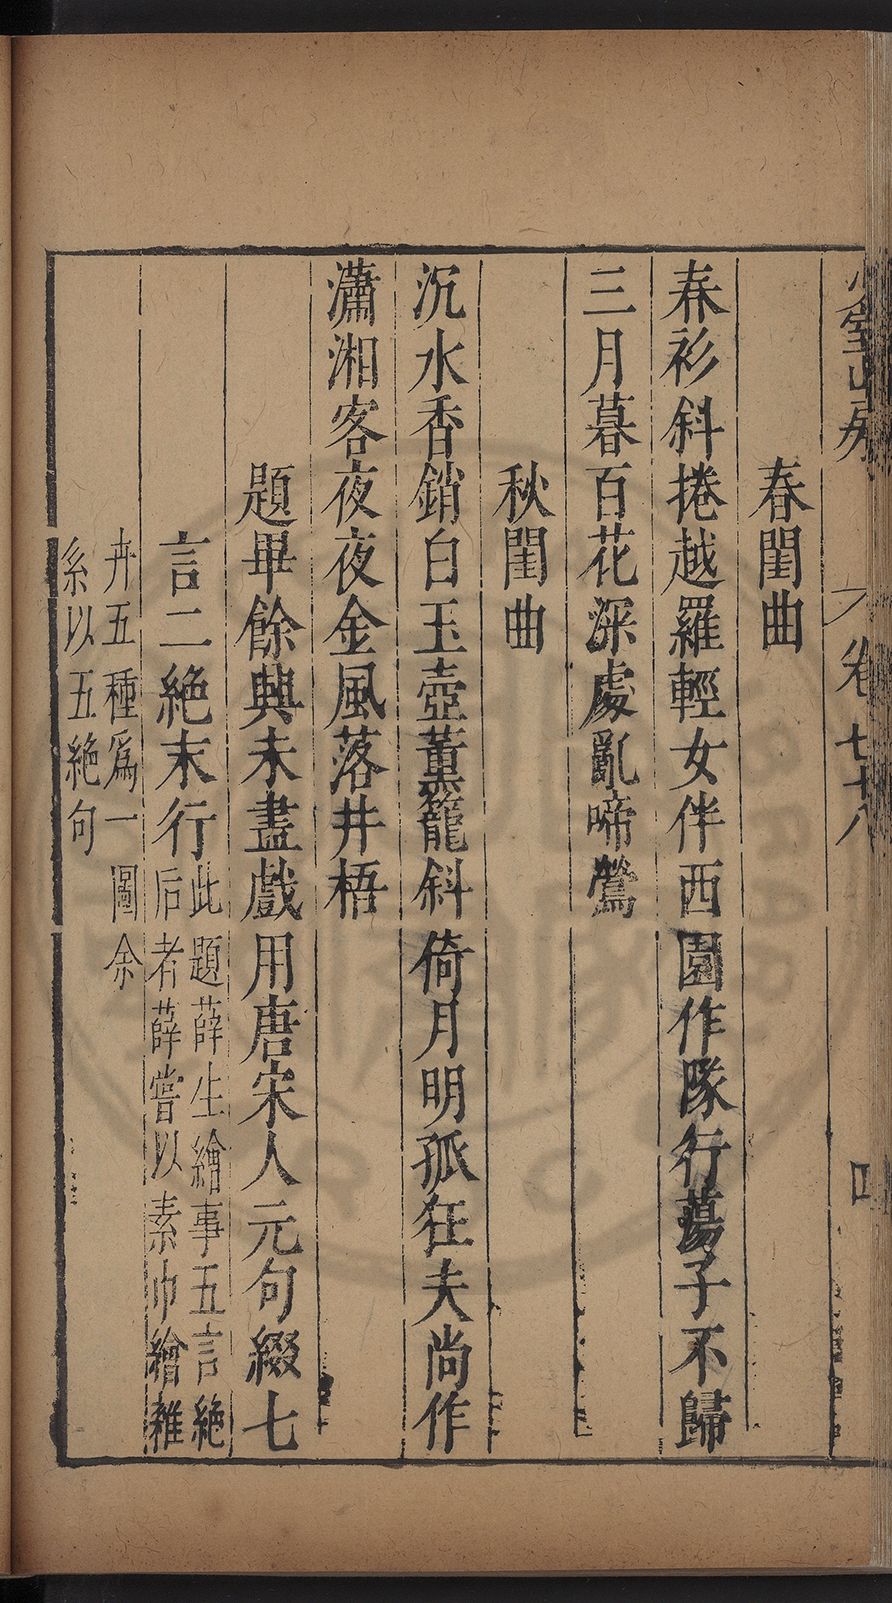 卷七十八
四
春閨曲
春衫斜捲越羅輕女伴西園作隊行蕩子不歸
三月暮百花深處亂啼鶯
秋閨曲
沉水香銷白玉壺薰籠斜倚月明孤狂夫尚作
瀟湘客夜夜金風落井梧
題畢餘興未盡戲用唐宋人元句綴七
言二絶末行
此題薛生繪事五言絶
后者薛嘗以素巾繪雜
卉五種爲一圖余
系以五絶句